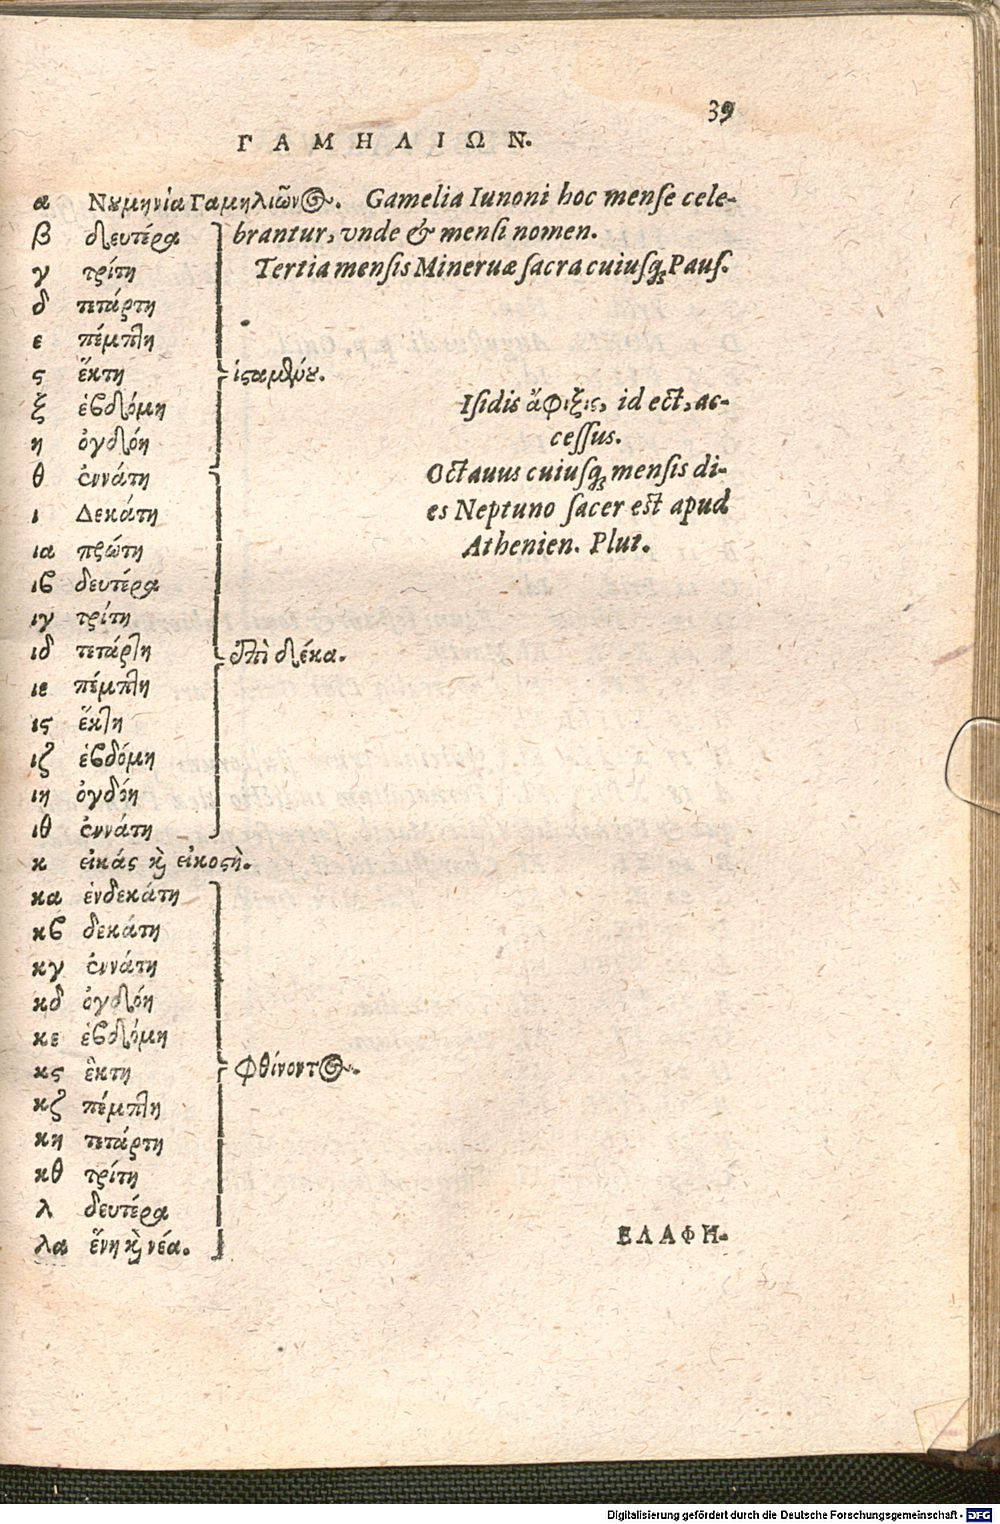 39
ΓΑΜΗΛΙΩΝ.
α Νουμηνία Γαμηλιῶνος. Gamelia Iunoni hoc mense cele-
β δευτέρα brantur, vnde & mensi nomen.
γ τρίτη Tertia mensis Mineruæ sacra cuiusq; Paus.
δ τετάρτη
ε πέμπτη
ς ἕκτη ἱσταμένου.
ξ ἑβδόμη Isidis ἄφιξις, id est, ac-
η ὀγδόη cessus.
θ ἐννάτη Octauus cuiusq; mensis di-
ι Δεκάτη es Neptuno sacer est apud
ια πρώτη Athenien. Plut.
ιβ δευτέρα
ιγ τρίτη
ιδ τετάρτη ἐπὶ δέκα.
ιε πέμπτη
ις ἕκτη
ιζ ἑβδόμη
ιη ὀγδόη
ιθ ἐννάτη
κ εἰκάς καὶ εἰκοστὴ.
κα ἑνδεκάτη
κβ δεκάτη
κγ ἐννάτη
κδ ὀγδόη
κε ἑβδόμη
κς ἕκτη φθίνοντος.
κζ πέμπτη
κη τετάρτη
κθ τρίτη
λ δευτέρα
λα ἕνη καὶ νέα.
ΕΛΑΦΗ-
Digitalisierung gefördert durch die Deutsche Forschungsgemeinschaft - DFG